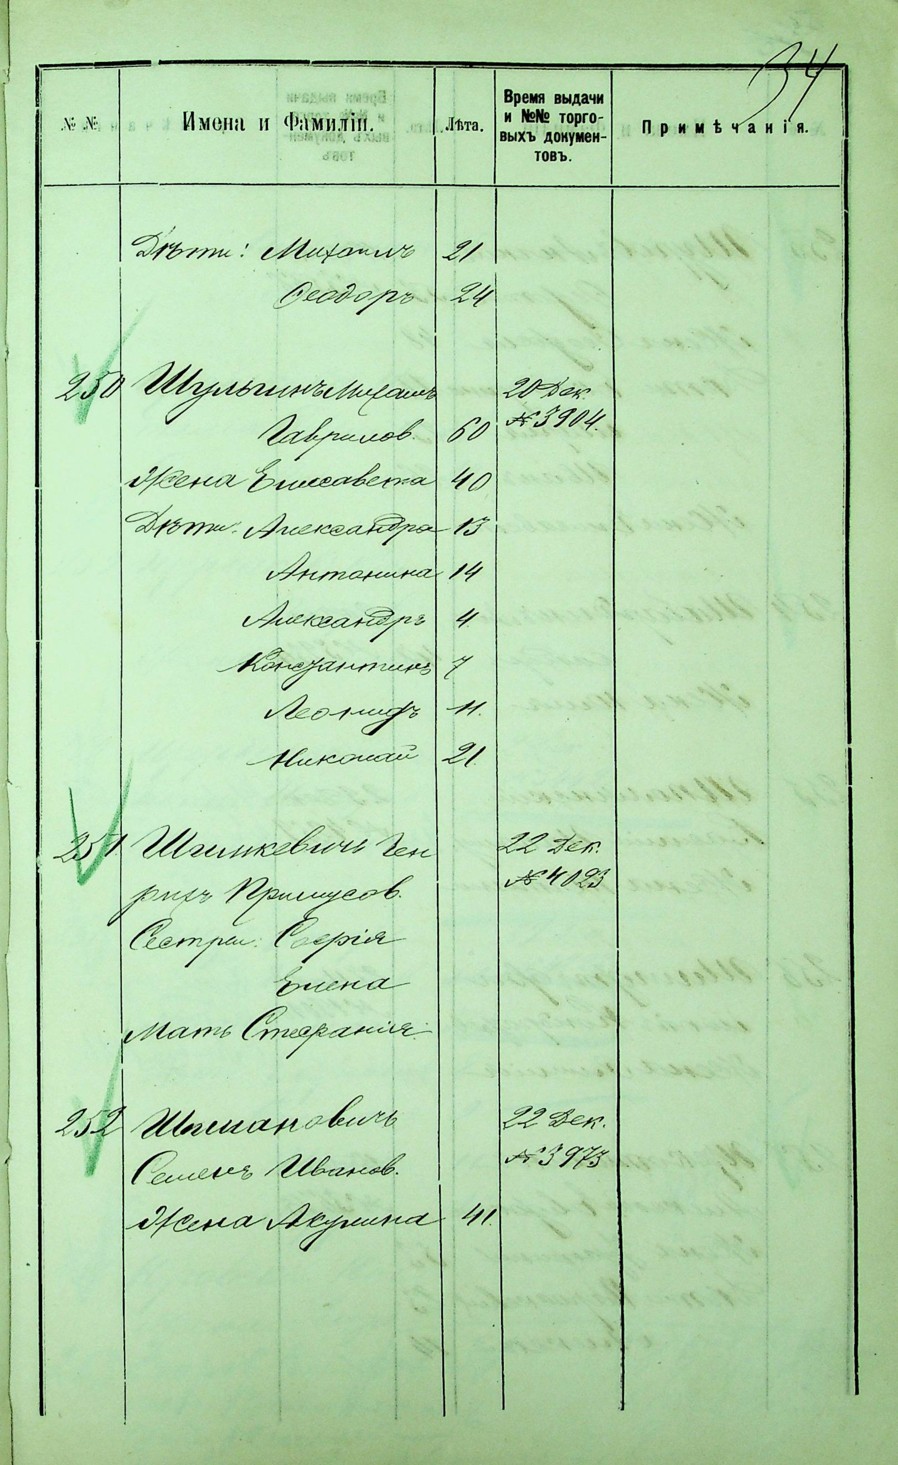 34
№ № Имена и Фамиліи. Лѣта. Время выдачи и №№ торго-выхъ докумен-товъ. Примѣчанія.
Дѣти: Михаилъ 21
Феодоръ 24
250 Шульгинъ Михаилъ 20 Дек.
Гаврилов. 60 № 3904.
Жена Елисавета 40
Дѣти: Александра 13
Антонина 14
Александръ 4
Константинъ 7
Леонидъ 11.
Николай 21.
251. Шимкевичъ Ген 22 Дек.
рихъ Примусов. № 4023
Сестры: Софія
Елена
Мать Стефанія.
252 Шимановичъ 22 Дек.
Семенъ Иванов. № 3973
Жена Акулина 41.